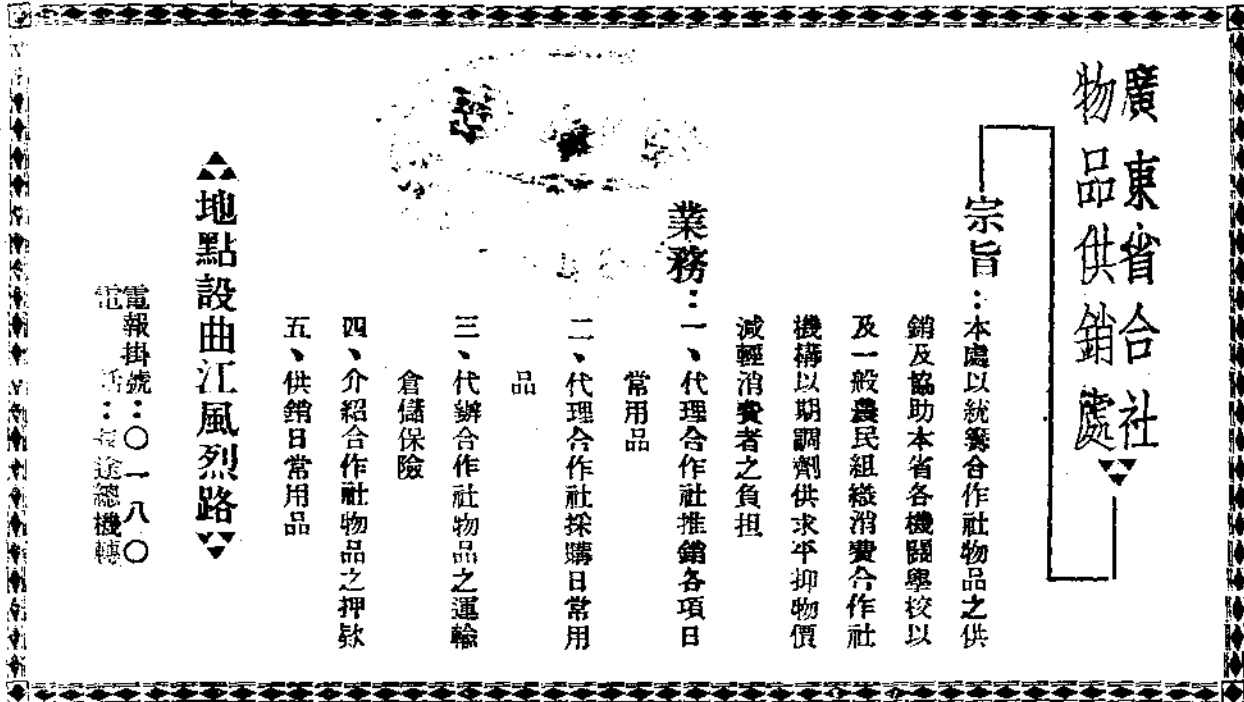 廣東省合社
物品供銷處
宗旨：本處以統籌合作社物品之供
銷及協助本省各機關學校以
及一般農民組織消費合作社
機構以期調劑供求平抑物價
減輕消費者之負担
業務：一、代理合作社推銷各項日
常用品
二、代理合作社採購日常用
品
三、代辦合作社物品之運輸
倉儲保險
四、介紹合作社物品之押欵
五、供銷日常用品
地點設曲江風烈路
電報掛號：〇一八〇
電話：長途總機轉